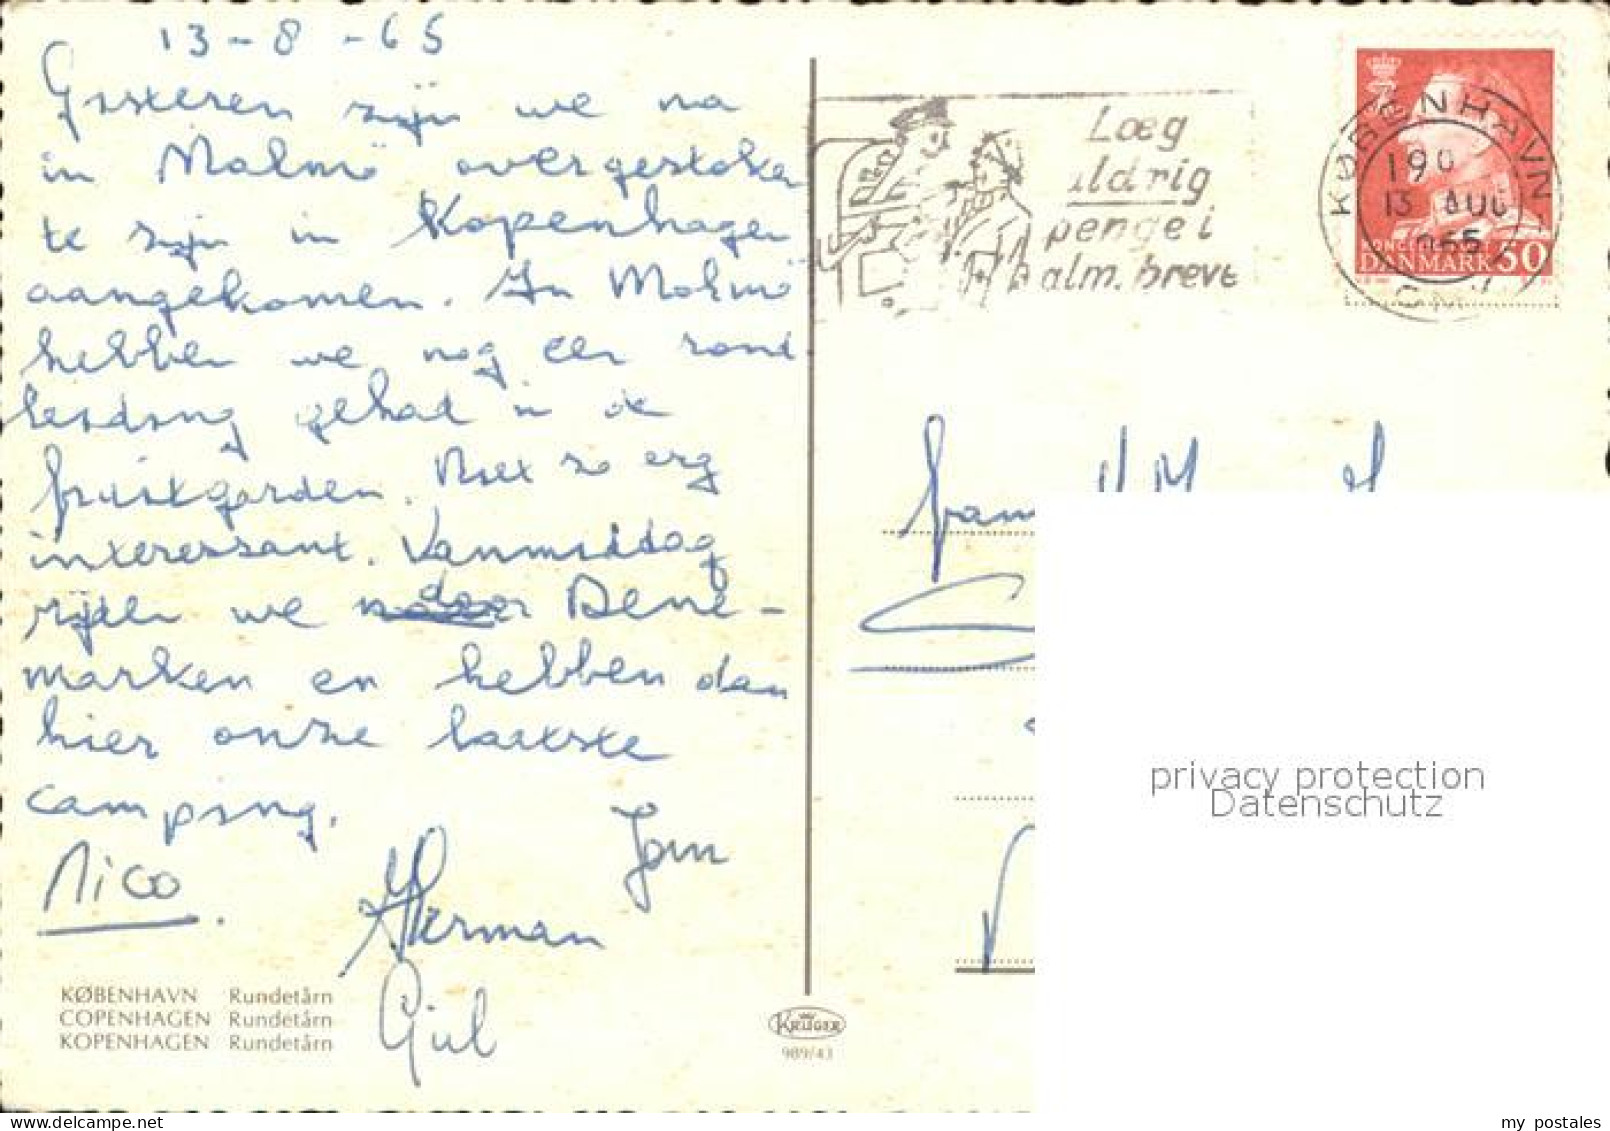 13-8-65
Gisteren zijn we na
in Malmö overgestoken
te zijn in Kopenhagen
aangekomen. In Malmö
hebben we nog een rond
leiding gehad in de
fruitgarden. Niet zo erg
interessant. Vanmiddag
rijden we door Dene-
marken en hebben dan
hier onze laatste
camping.
Nico
Herman
Giel
KØBENHAVN Rundetårn
COPENHAGEN Rundetårn
KOPENHAGEN Rundetårn
KRÜGER
989/43
Læg
aldrig
penge i
alm. breve
KØBENHAVN
OMK.
190
13 AUG
1965
DANMARK 50
fam
privacy protection
Datenschutz
my postales